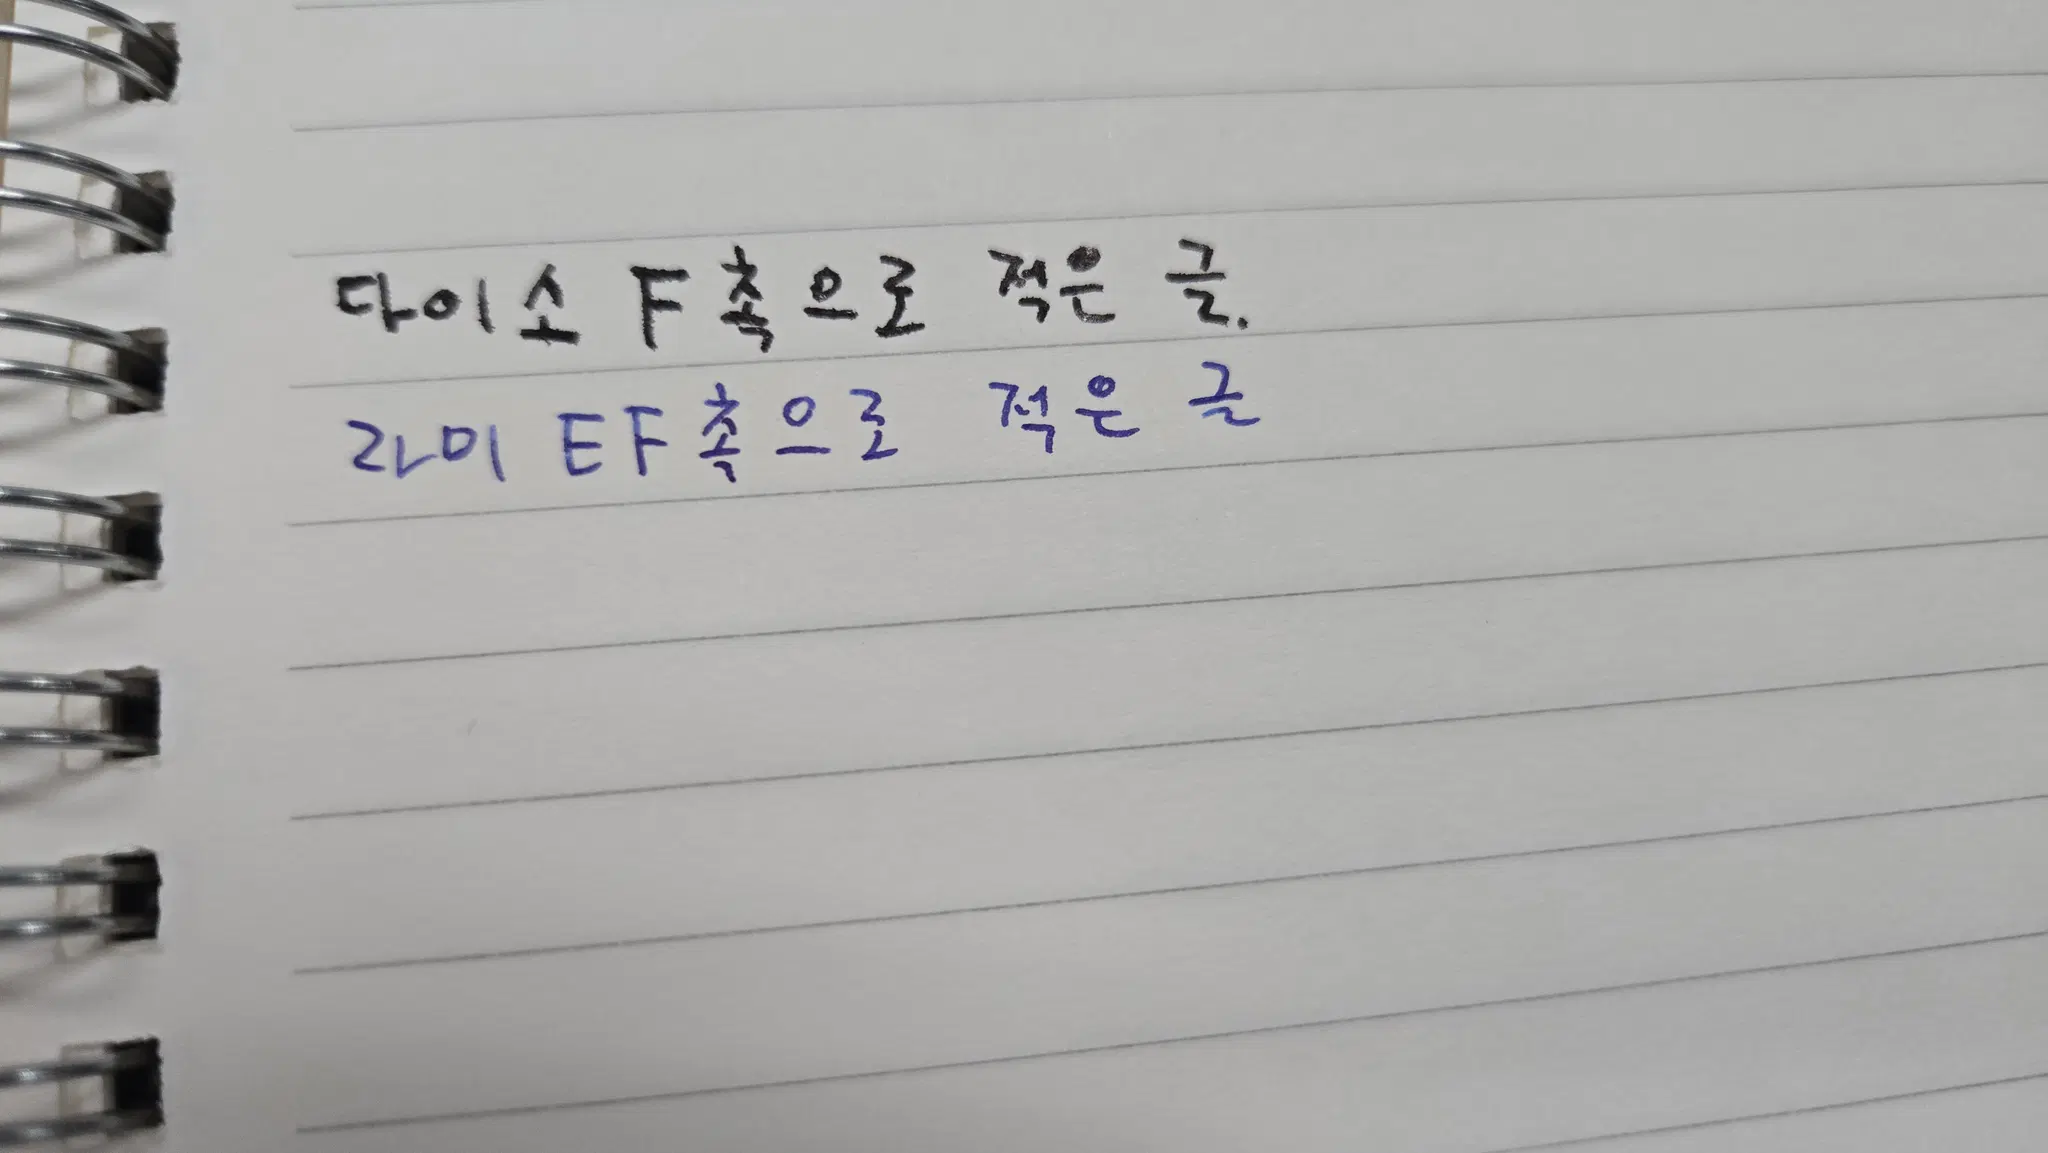 다이소 F촉으로 적은 글.
라미 EF촉으로 적은 글